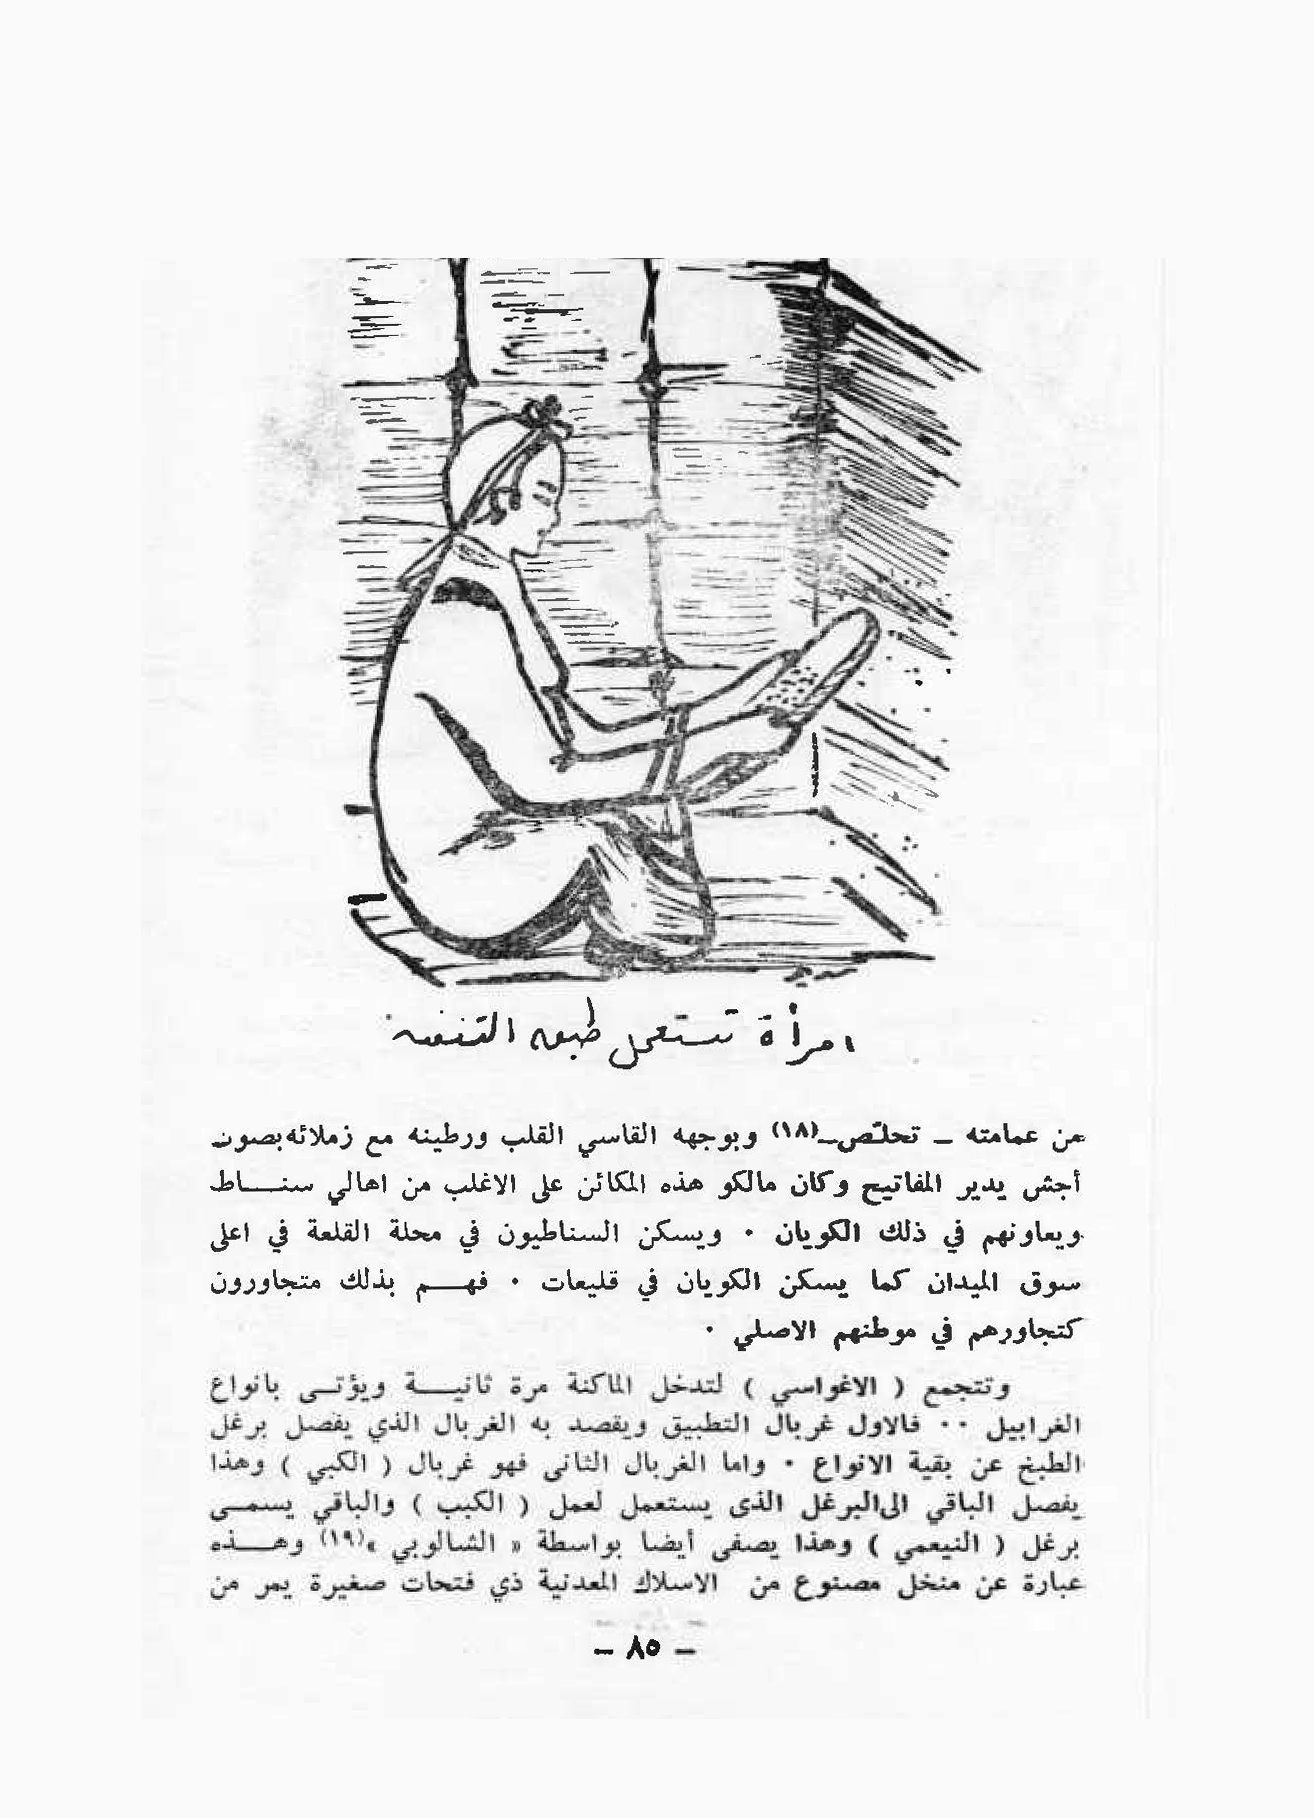 امرأة تستعمل طبق التنفسه
من عمامته ــ تحلّص ــ(١٨) وبوجهه القاسي القلب ورطينه مع زملائه بصوت
أجش يدير المفاتيح وكان مالكو هذه المكائن على الاغلب من اهالي سنـــاط
ويعاونهم في ذلك الكويان ٠ ويسكن السناطيون في محلة القلعة في اعلى
سوق الميدان كما يسكن الكويان في قليعات ٠ فهـــم بذلك متجاورون
كتجاورهم في موطنهم الاصلي ٠
وتتجمع ( الاغواسي ) لتدخل الماكنة مرة ثانيـــة ويؤتــى بانواع
الغرابيل ٠٠ فالاول غربال التطبيق ويقصد به الغربال الذي يفصل برغل
الطبخ عن بقية الانواع ٠ واما الغربال الثانى فهو غربال ( الكبي ) وهذا
يفصل الباقي الى البرغل الذى يستعمل لعمل ( الكبب ) والباقي يسمــى
برغل ( النيعمي ) وهذا يصفى أيضا بواسطة « الشالوبي »(١٩) وهـــذه
عبارة عن منخل مصنوع من الاسلاك المعدنية ذي فتحات صغيرة يمر من
ــ ٨٥ ــ